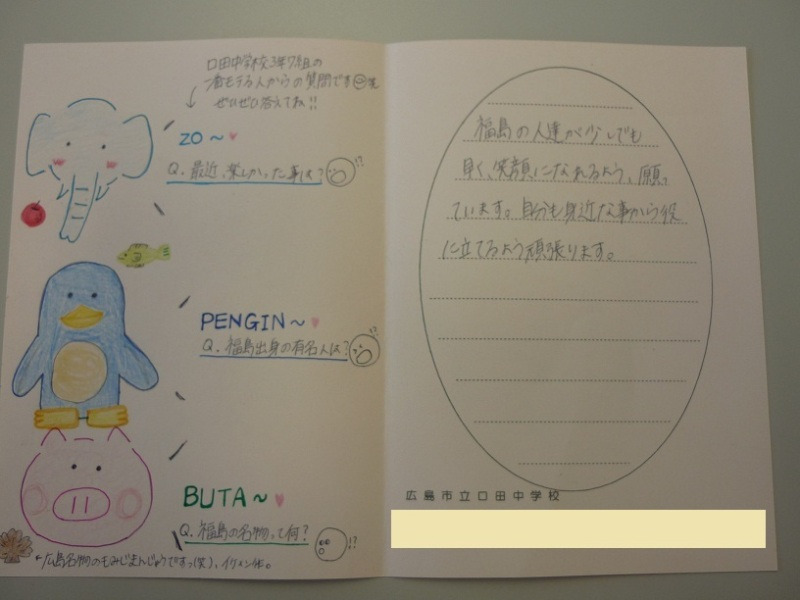 口田中学校3年7組の
一番モテる人からの質問です笑
ぜひぜひ答えてね!!
ZO~♥
Q. 最近、楽しかった事は?!?
PENGIN~♥
Q. 福島出身の有名人は?!?
BUTA~♥
Q. 福島の名物って何?!?
←広島名物のもみじまんじゅうですっ(笑)、イケメン作。
福島の人達が少しでも
早く、笑顔になれるよう、願っ
ています。自分も身近な事から役
に立てるよう頑張ります。
広島市立口田中学校